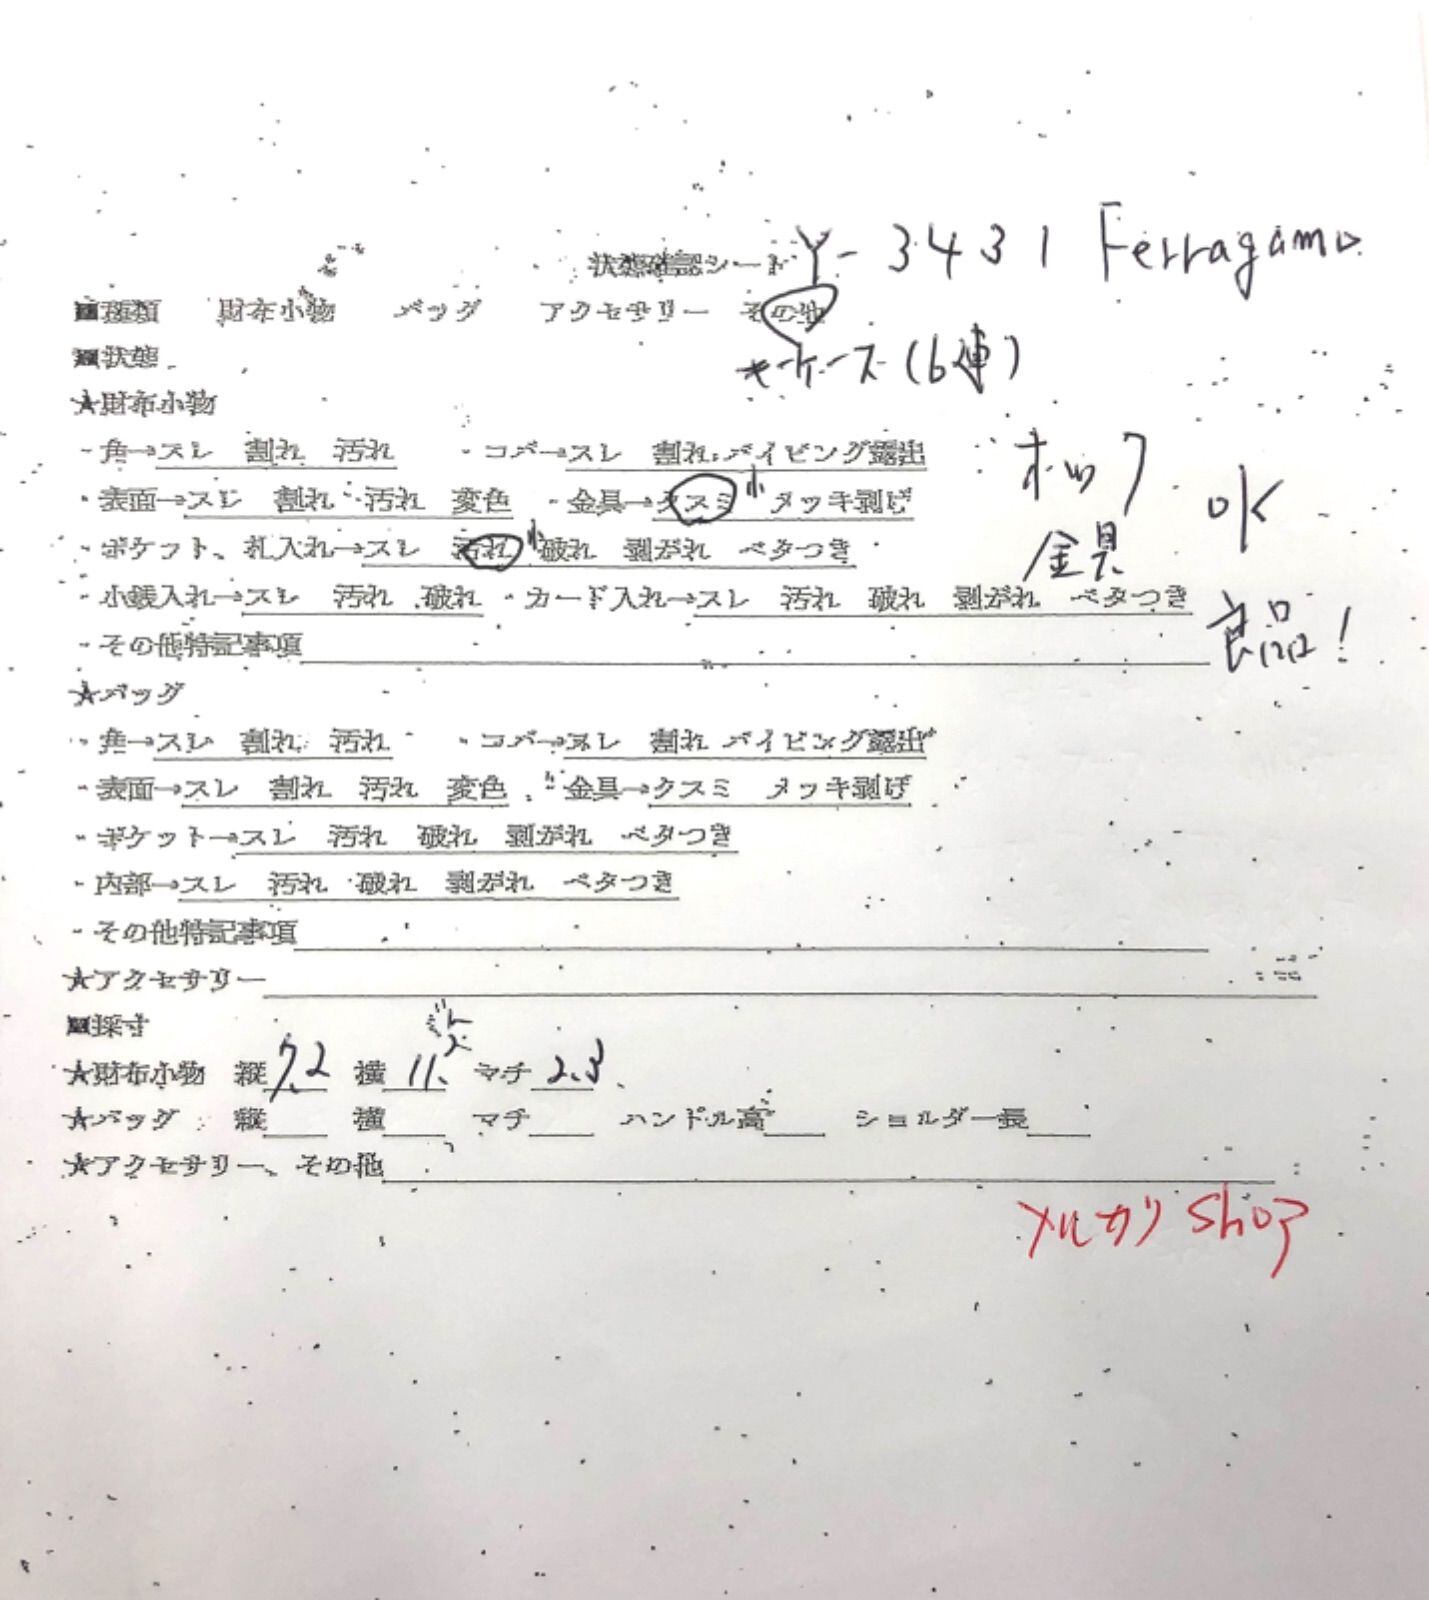 状態確認シート Y-3431 Ferragamo
■種類 財布小物 バッグ アクセサリー その他
■状態 キーケース(6連)
★財布小物
・角→スレ 割れ 汚れ ・コバ→スレ 割れ パイピング露出 ホック
・表面→スレ 割れ 汚れ 変色 ・金具→クスミ 小 メッキ剥げ OK
・ポケット、札入れ→スレ 汚れ 小 破れ 剥がれ ベタつき 金具
・小銭入れ→スレ 汚れ 破れ ・カード入れ→スレ 汚れ 破れ 剥がれ ベタつき
・その他特記事項 良品!
★バッグ
・角→スレ 割れ 汚れ ・コバ→スレ 割れ パイピング露出
・表面→スレ 割れ 汚れ 変色 ・金具→クスミ メッキ剥げ
・ポケット→スレ 汚れ 破れ 剥がれ ベタつき
・内部→スレ 汚れ 破れ 剥がれ ベタつき
・その他特記事項
★アクセサリー
■採寸
★財布小物 縦 7.2 横 11.2 マチ 2.3
★バッグ 縦 横 マチ ハンドル高 ショルダー長
★アクセサリー、その他
メルカリ Shop